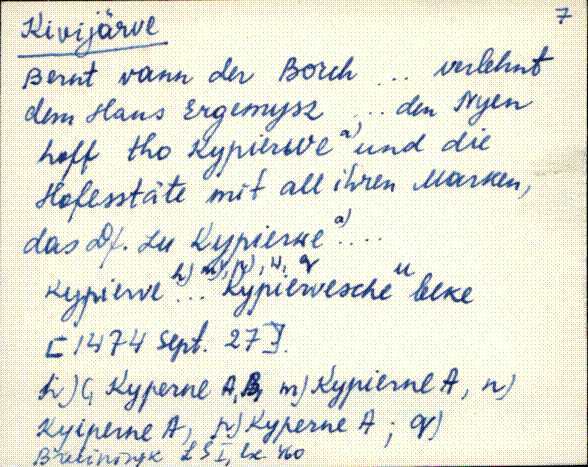 7
Kivijärve
Bernt vann der Borch ... verlehnt
dem Hans Ergemysz ... den Nyen
hoff tho Kypierwe a) und die
Hofesstäte mit all ihren Marken,
das Df. zu Kypierwe a) ....
Kypierve h) ... m), p), n, q Kypiervesche u beke
[1474 Sept. 27].
h) C, Kyperne A, B, m) Kypierne A, n)
Kyiperne A, p) Kyperne A ; q)
LGI,